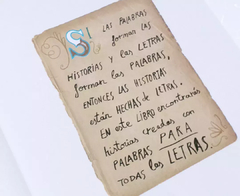 Si LAS PALABRAS
forman LAS
HISTORIAS y las LETRAS
forman las PALABRAS,
ENTONCES LAS HISTORIAS
están HECHAS de LETRAS.
EN este LIBRO encontrarás
historias creadas con
PALABRAS PARA
TODAS las LETRAS.